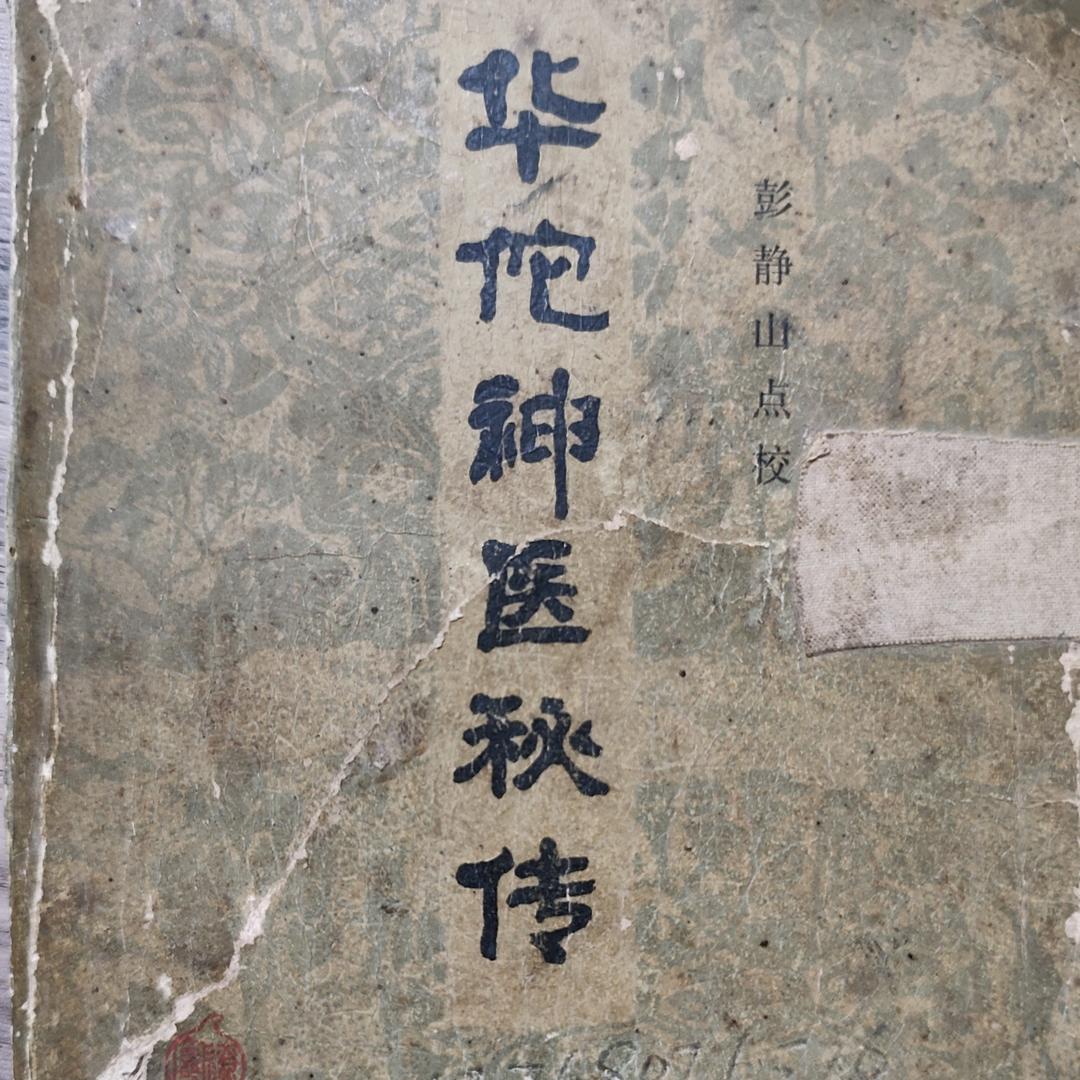 彭静山点校
华佗神医秘传